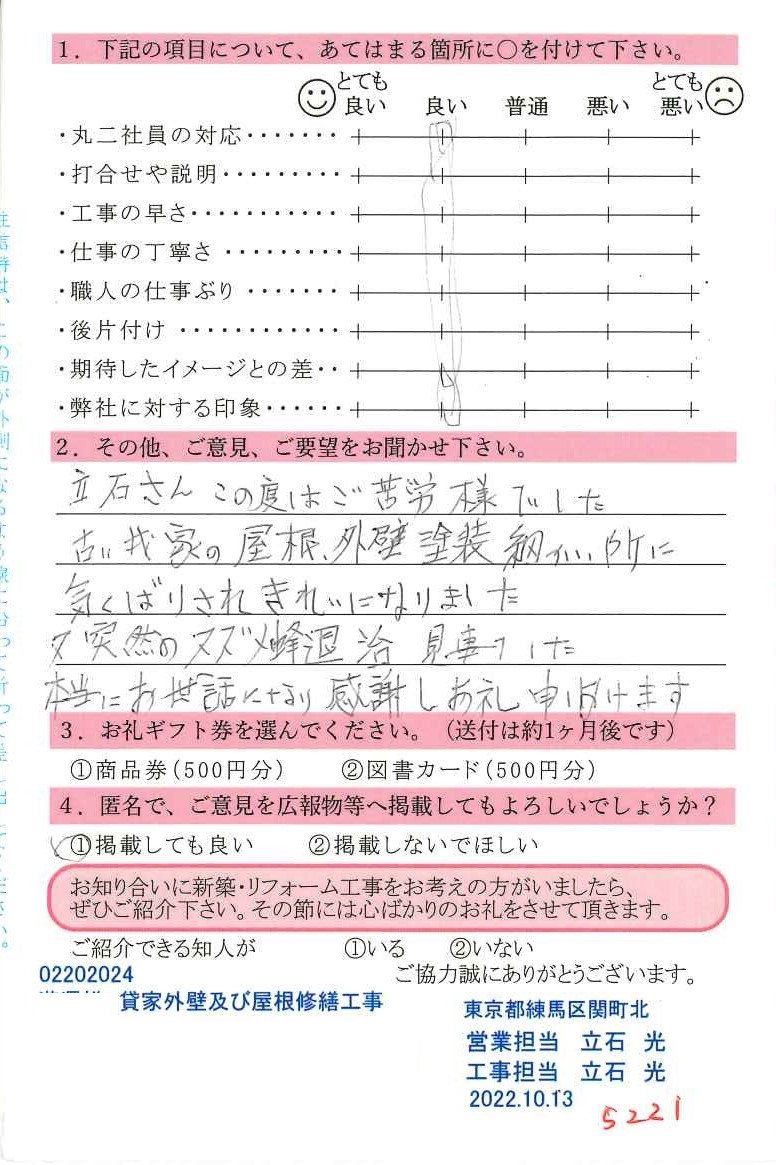 1．下記の項目について、あてはまる箇所に○を付けて下さい。
とても良い 良い 普通 悪い とても悪い
・丸二社員の対応・・・・・・・
・打合せや説明・・・・・・・・・
・工事の早さ・・・・・・・・・・・
・仕事の丁寧さ ・・・・・・・・・
・職人の仕事ぶり ・・・・・・・
・後片付け ・・・・・・・・・・・・
・期待したイメージとの差・・
・弊社に対する印象・・・・・・
2．その他、ご意見、ご要望をお聞かせ下さい。
立石さん この度はご苦労様でした
古い我家の屋根、外壁塗装細かい所に
気くばりされきれいになりました
又突然のスズメ蜂退治 見事でした
本当にお世話になり感謝しお礼申し上げます
3．お礼ギフト券を選んでください。（送付は約1ヶ月後です）
①商品券（500円分） ②図書カード（500円分）
4．匿名で、ご意見を広報物等へ掲載してもよろしいでしょうか？
①掲載しても良い ②掲載しないでほしい
お知り合いに新築・リフォーム工事をお考えの方がいましたら、
ぜひご紹介下さい。その節には心ばかりのお礼をさせて頂きます。
ご紹介できる知人が ①いる ②いない
ご協力誠にありがとうございます。
02202024
貸家外壁及び屋根修繕工事
東京都練馬区関町北
営業担当 立石 光
工事担当 立石 光
2022.10.13
5221